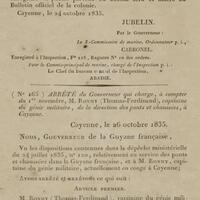 Bulletin officiel de la colonie.
Cayenne, le 24 octobre 1835.
JUBELIN.
Par le Gouverneur:
Le Commissaire de marine, Ordonnateur p. i.,
CARBONEL.
Enregistré à l'Inspection, F° 128, Registre N° des ordres.
Pour le Commis principal de marine, chargé de l'Inspection p. i.:
Le Chef du bureau de l'Inspection,
N° 265) ARRÊTÉ du Gouverneur qui charge, à compter
du 1er novembre, M. Royet (Thomas-Ferdinand), capitaine
du génie militaire, de la direction des ponts et chaussées, à
Cayenne.
Cayenne, le 26 octobre 1835.
Nous, Gouverneur de la Guyane française,
Vu les dispositions contenues dans la dépêche ministérielle
du 24 juillet 1835, n° relative aux ponts
et chaussées dans la Guyane française, et à M. Royet, capitaine
du génie militaire,
Avons arrêté et arrêtons ce qui suit:
Article premier.
M. Royet (Thomas-Ferdinand), capitaine du génie mili-